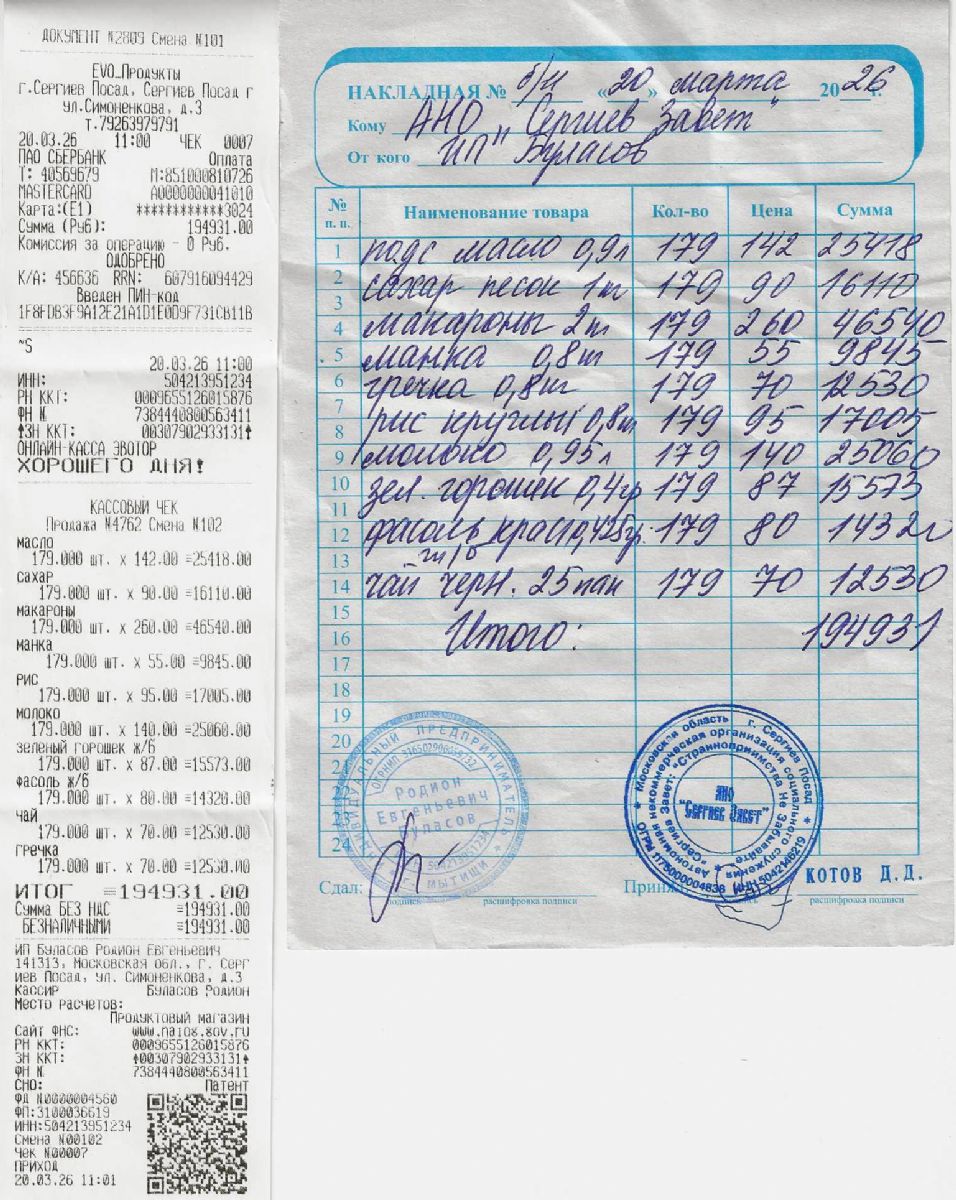 ДОКУМЕНТ N2809 Смена N101
EVO_Продукты
г.Сергиев Посад, Сергиев Посад г
ул.Симоненкова, д.3
т.79263979791
20.03.26 11:00 ЧЕК 0007
ПАО СБЕРБАНК Оплата
Т: 40569679 М:851000810726
MASTERCARD A0000000041010
Карта:(E1) ************3024
Сумма (Руб): 194931.00
Комиссия за операцию - 0 Руб.
ОДОБРЕНО
К/А: 456636 RRN: 607916094429
Введен ПИН-код
1F8FDB3F9A12E21A1D1E0D9F731CB11B
~S
20.03.26 11:00
ИНН: 504213951234
РН ККТ: 0009655126015876
ФН N 7384440800563411
↑ЗН ККТ: 00307902933131↑
ОНЛАЙН-КАССА ЭВОТОР
ХОРОШЕГО ДНЯ!
КАССОВЫЙ ЧЕК
Продажа N4762 Смена N102
масло
179.000 шт. x 142.00 =25418.00
сахар
179.000 шт. x 90.00 =16110.00
макароны
179.000 шт. x 260.00 =46540.00
манка
179.000 шт. x 55.00 =9845.00
рис
179.000 шт. x 95.00 =17005.00
молоко
179.000 шт. x 140.00 =25060.00
зеленый горошек ж/б
179.000 шт. x 87.00 =15573.00
фасоль ж/б
179.000 шт. x 80.00 =14320.00
чай
179.000 шт. x 70.00 =12530.00
гречка
179.000 шт. x 70.00 =12530.00
ИТОГ =194931.00
Сумма БЕЗ НДС =194931.00
БЕЗНАЛИЧНЫМИ =194931.00
ИП Буласов Родион Евгеньевич
141313, Московская обл., г. Серг
иев Посад, ул. Симоненкова, д.3
Кассир Буласов Родион
Место расчетов:
Продуктовый магазин
Сайт ФНС: www.nalog.gov.ru
РН ККТ: 0009655126015876
ЗН ККТ: ↑00307902933131↑
ФН N 7384440800563411
СНО: Патент
ФД N0000004560
ФП:3100036619
ИНН:504213951234
Смена N00102
Чек N00007
ПРИХОД
20.03.26 11:01
НАКЛАДНАЯ № б/н «20» марта 2026 г.
Кому АНО "Сергиев Завет"
От кого ИП Буласов
№ п. п. Наименование товара Кол-во Цена Сумма
1 подс масло 0,9л 179 142 25418
2 сахар песок 1кг 179 90 16110
3
4 макароны 2кг 179 260 46540
5 манка 0,8кг 179 55 9845
6 гречка 0,8кг 179 70 12530
7
8 рис круглый 0,8кг 179 95 17005
9 молоко 0,95л 179 140 25060
10 зел. горошек 0,4гр 179 87 15573
11
12 фасоль красн 0,425гр. 179 80 14320
13 ж/б
14 чай черн. 25пак 179 70 12530
15
16 Итого: 194931
17
18
19
20
21
22
23
24
ИНДИВИДУАЛЬНЫЙ ПРЕДПРИНИМАТЕЛЬ
Родион
Евгеньевич
Буласов
504213951234
МЫТИЩИ
Московская область г. Сергиев Посад
Автономная некоммерческая организация социального служения
"Сергиев Завет: "Странноприимства Не Забывайте"
АНО
"Сергиев Завет"
ОГРН 1175000004838 ИНН 5042146219
Сдал: подпись расшифровка подписи
Принял: КОТОВ Д.Д.
расшифровка подписи